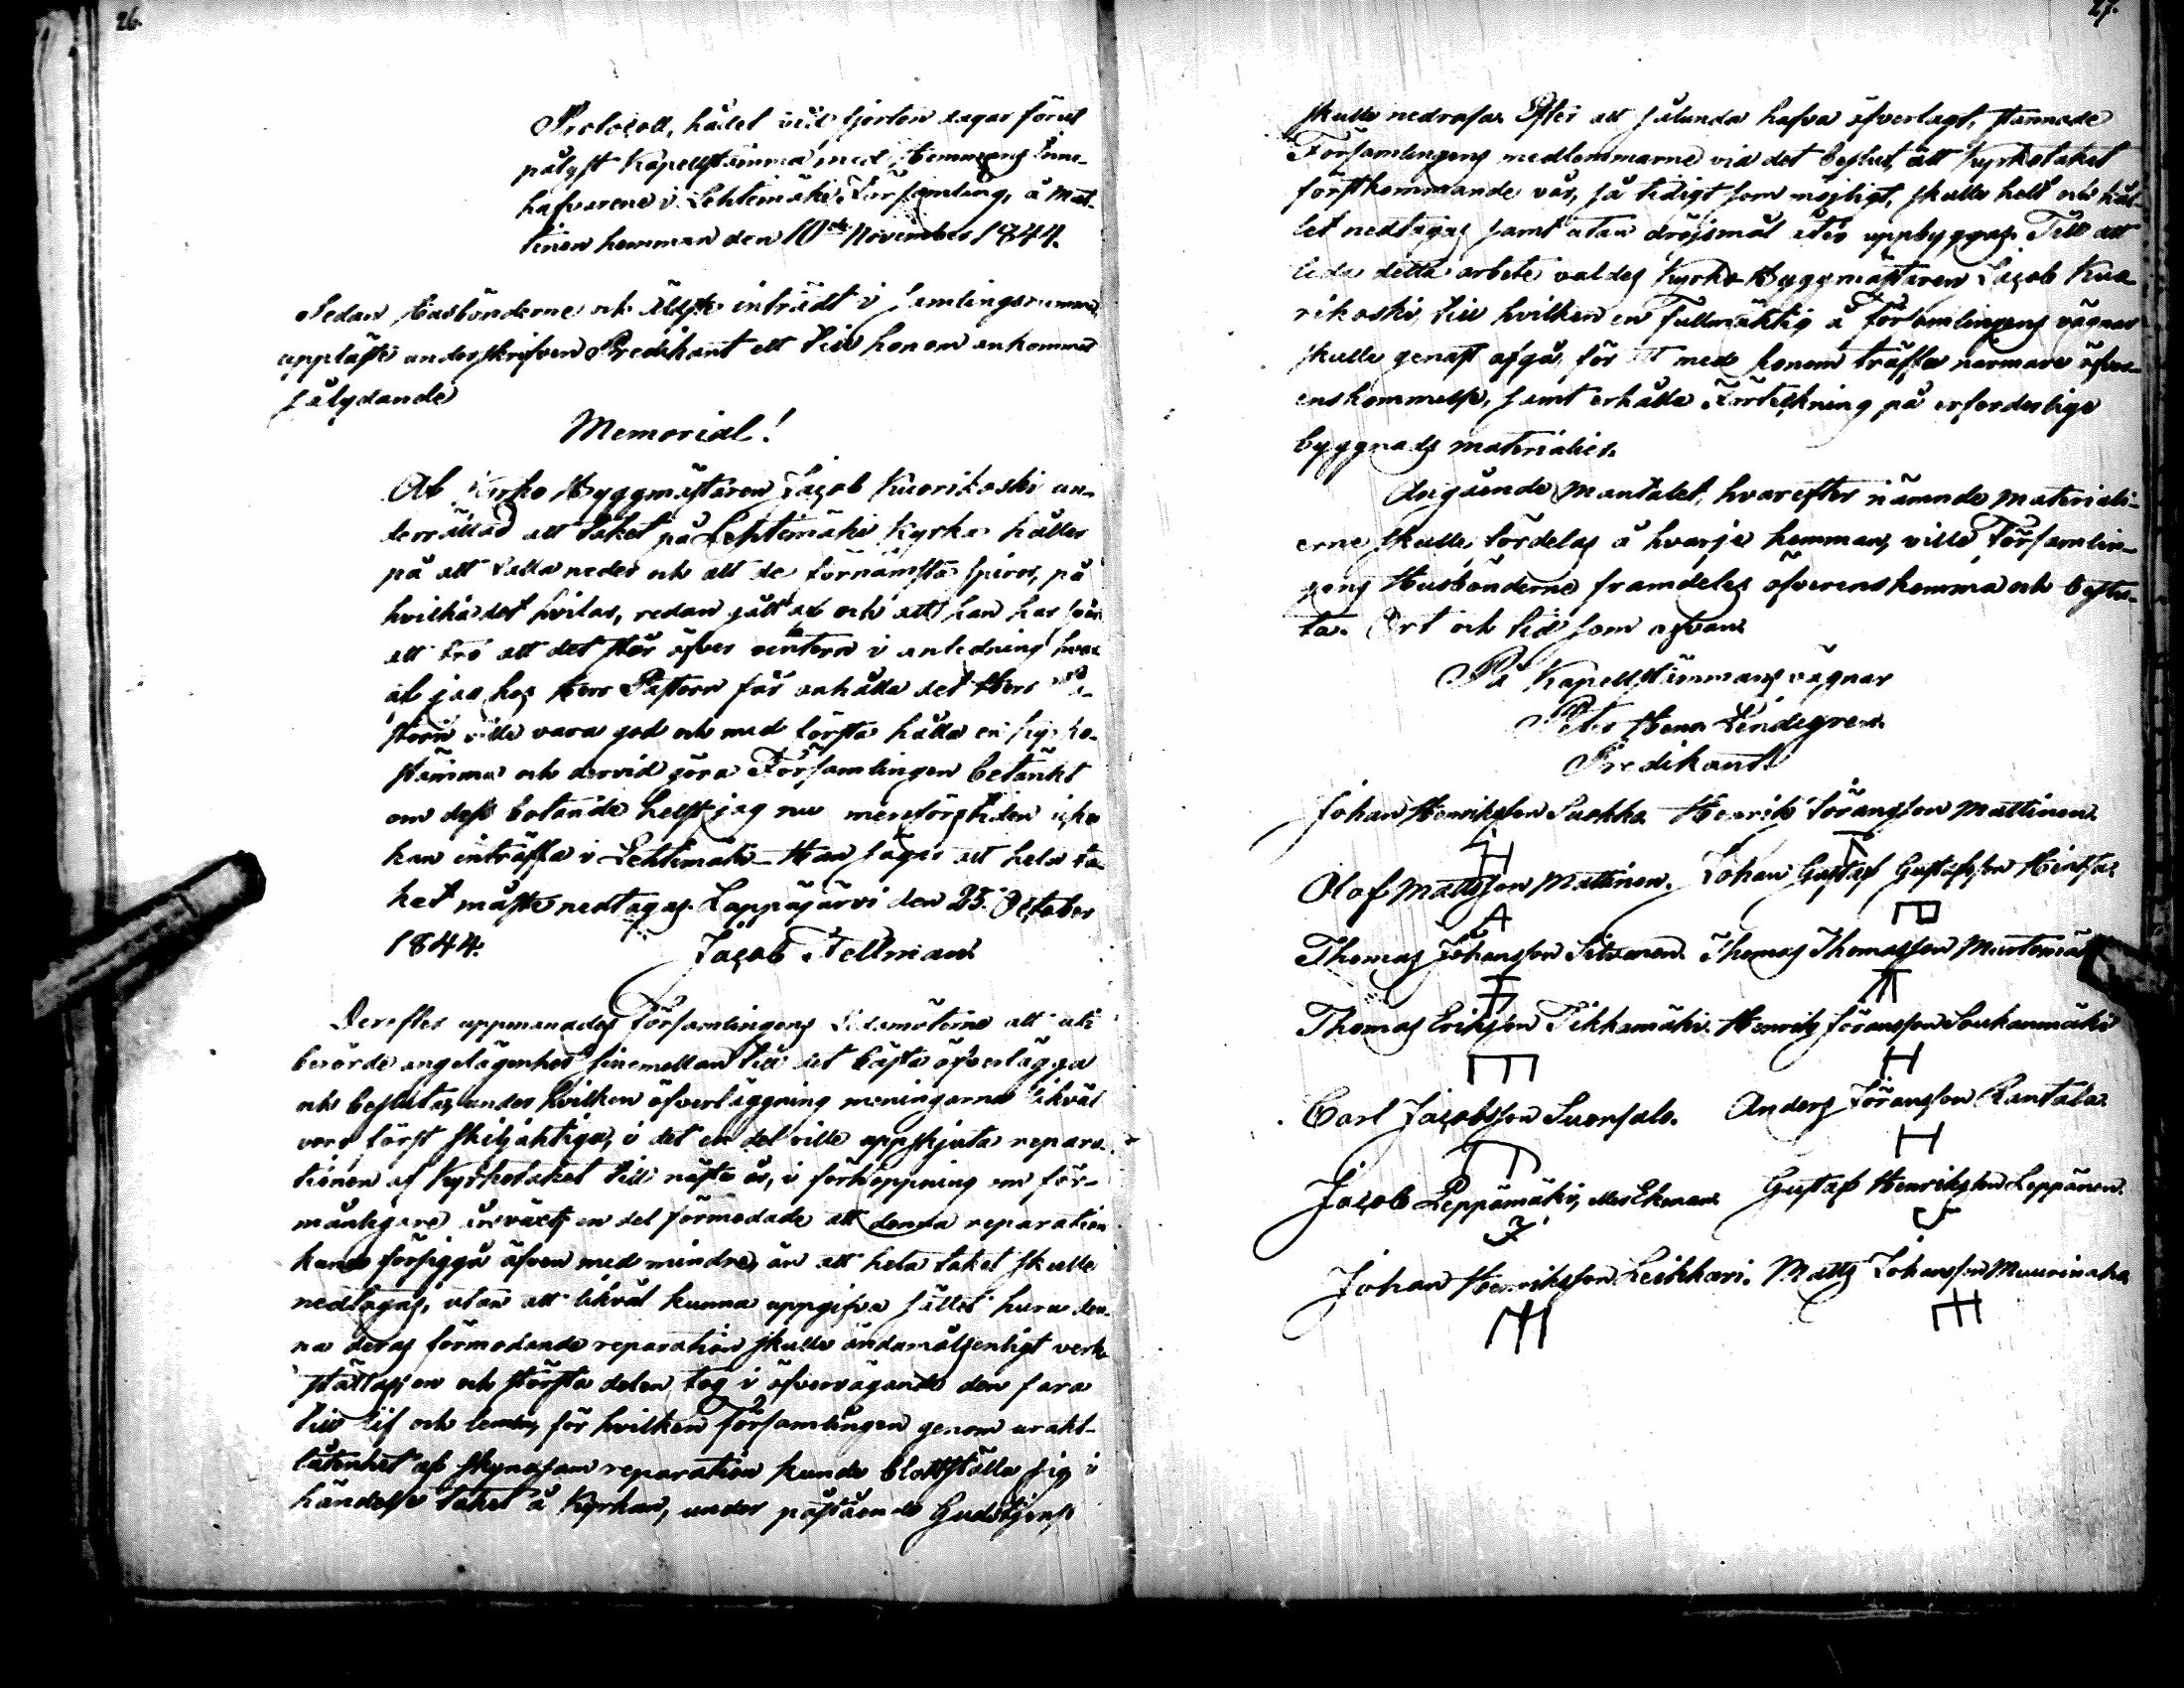 26.
Protocoll, hållet vid fjorton dagar förut
pålyst Kapellstämma med Hemmans Inne-
hafvarene i Lehtimäki Församling, å Mat-
tinen hemman den 10de November 1844.
Sedan Husbönderne och äldste inträdt i samlingsrummet,
uppläste underskrifven Predikant ett till honom ankommet
sålydande
Memorial!
Af Kyrko Byggmästaren Jacob Kuorikoski un-
derrättad att taket på Lehtimäki Kyrka håller
på att falla neder och att de förnämsta spiror, på
hvilka det hvilar, redan gått af och att han har svår
att tro att det står öfver vintern i anledning hvar
af jag hos Herr Pastorn får anhålla det Herr Pa-
storn ville vara god och med första hålla en kyrko-
stämma och dervid göra Församlingen betänkt
om dess botande helst jag nu menförstiden icke
kan inträffa i Lehtimäki. Han säger att hela ta-
ket måste nedtagas. Lappajärvi den 25 October
1844. Jacob Fellman.
Derefter uppmanades Församlingens Ledamöterne att uti
berörde angelägenhet sinemellan till det bästa öfverlägga
och besluta, under hvilken öfverläggning meningarne likväl
voro först skiljaktiga, i det en del ville uppskjuta repara-
tionen af Kyrkotaket till nästa år, i förhoppning om för-
månligare årsväxt, en del förmodade att denna reparation
kunde försiggå äfven med mindre, än att hela taket skulle
nedtagas, utan att likväl kunna uppgifva sättet huru den-
na deras förmodande reparation skulle ändamålsenligt verk-
ställas, en och största delen tog i öfvervägande den fara
till lif och lem, för hvilken Församlingen genom urakt-
låtenhet af skyndsam reparation kunde blottställa sig i
händelse taket å Kyrkan, under påstående Gudstjenst
27.
skulle nedrasa. Efter att sålunda hafva öfverlagt, stannade
Församlingens medlemmarne vid det beslut, att kyrkotaket
förstkommande vår, så tidigt som möjligt, skulle helt och hål-
let nedtagas samt utan dröjsmål åter uppbyggas. Till att
leda detta arbete valdes Kyrko Byggmästaren Jacob Kuo-
rikoski, till hvilken en Fullmäktig å Församlingens vägnar
skulle genast afgå, för att med honom träffa närmare öfver-
enskommelse, samt erhålla Förteckning på erforderlige
byggnads materialier.
Angående Mantalet, hvarefter nämnde materiali-
erne skulle fördelas å hvarje hemman, ville Församlin-
gens Husbönderne framdeles öfverenskomma och beslu-
ta. Ort och tid som ofvan.
På Kapellstämmans vägnar
Peter Henr. Lindegren.
Predikant.
Johan Henriksson Suokko. Henrik Göransson Mattinen.
H
Olof Mattsson Mattinen. Johan Gustaf Gustafsson Hietsa.
A
Thomas Johansson Thomas Thomasson
Thomas Eriksson Tikkamäki. Henrik Göransson Saukanmäki
H
Carl Jacobsson Suonsalo. Anders Göransson Rantala.
H
Jacob Leppämäki, eller Ekman. Gustaf Henriksson Leppänen.
Johan Henriksson Leikkari. Matts Johansson